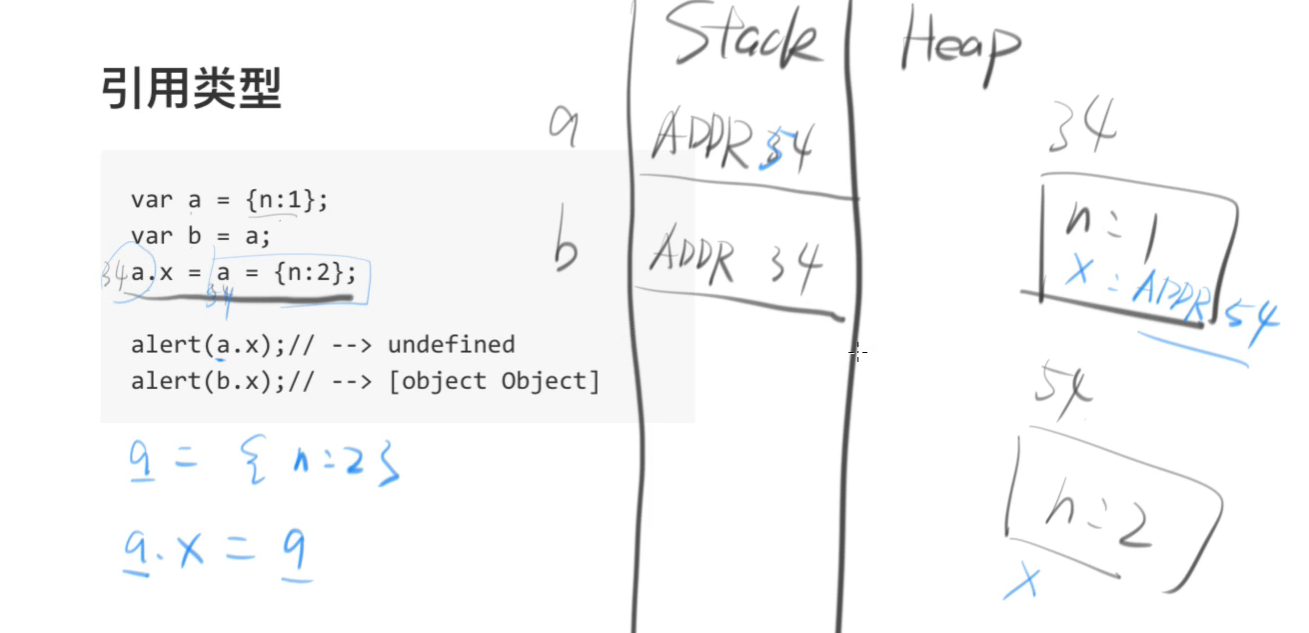 引用类型
var a = {n:1};
var b = a;
a.x = a = {n:2};
34
34
alert(a.x);// --> undefined
alert(b.x);// --> [object Object]
a = { n:2}
a.x = a
Stack
a ADDR 54
b ADDR 34
Heap
34
n:1
x:ADDR 54
54
n:2
x